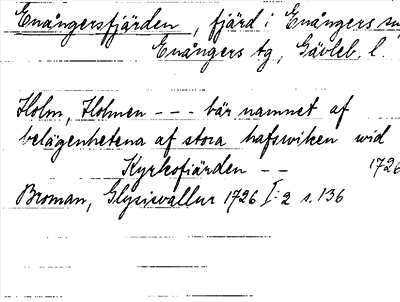 Enångersfjärden, fjärd i Enångers sn
Enångers tg, Gävleb. l.
Holm, Holmen - - - bär namnet af
belägenhetena af stora hafswiken wid
Kyrkofiärden - - 1726
Broman, Glysisvallur 1726 I:2 s. 136